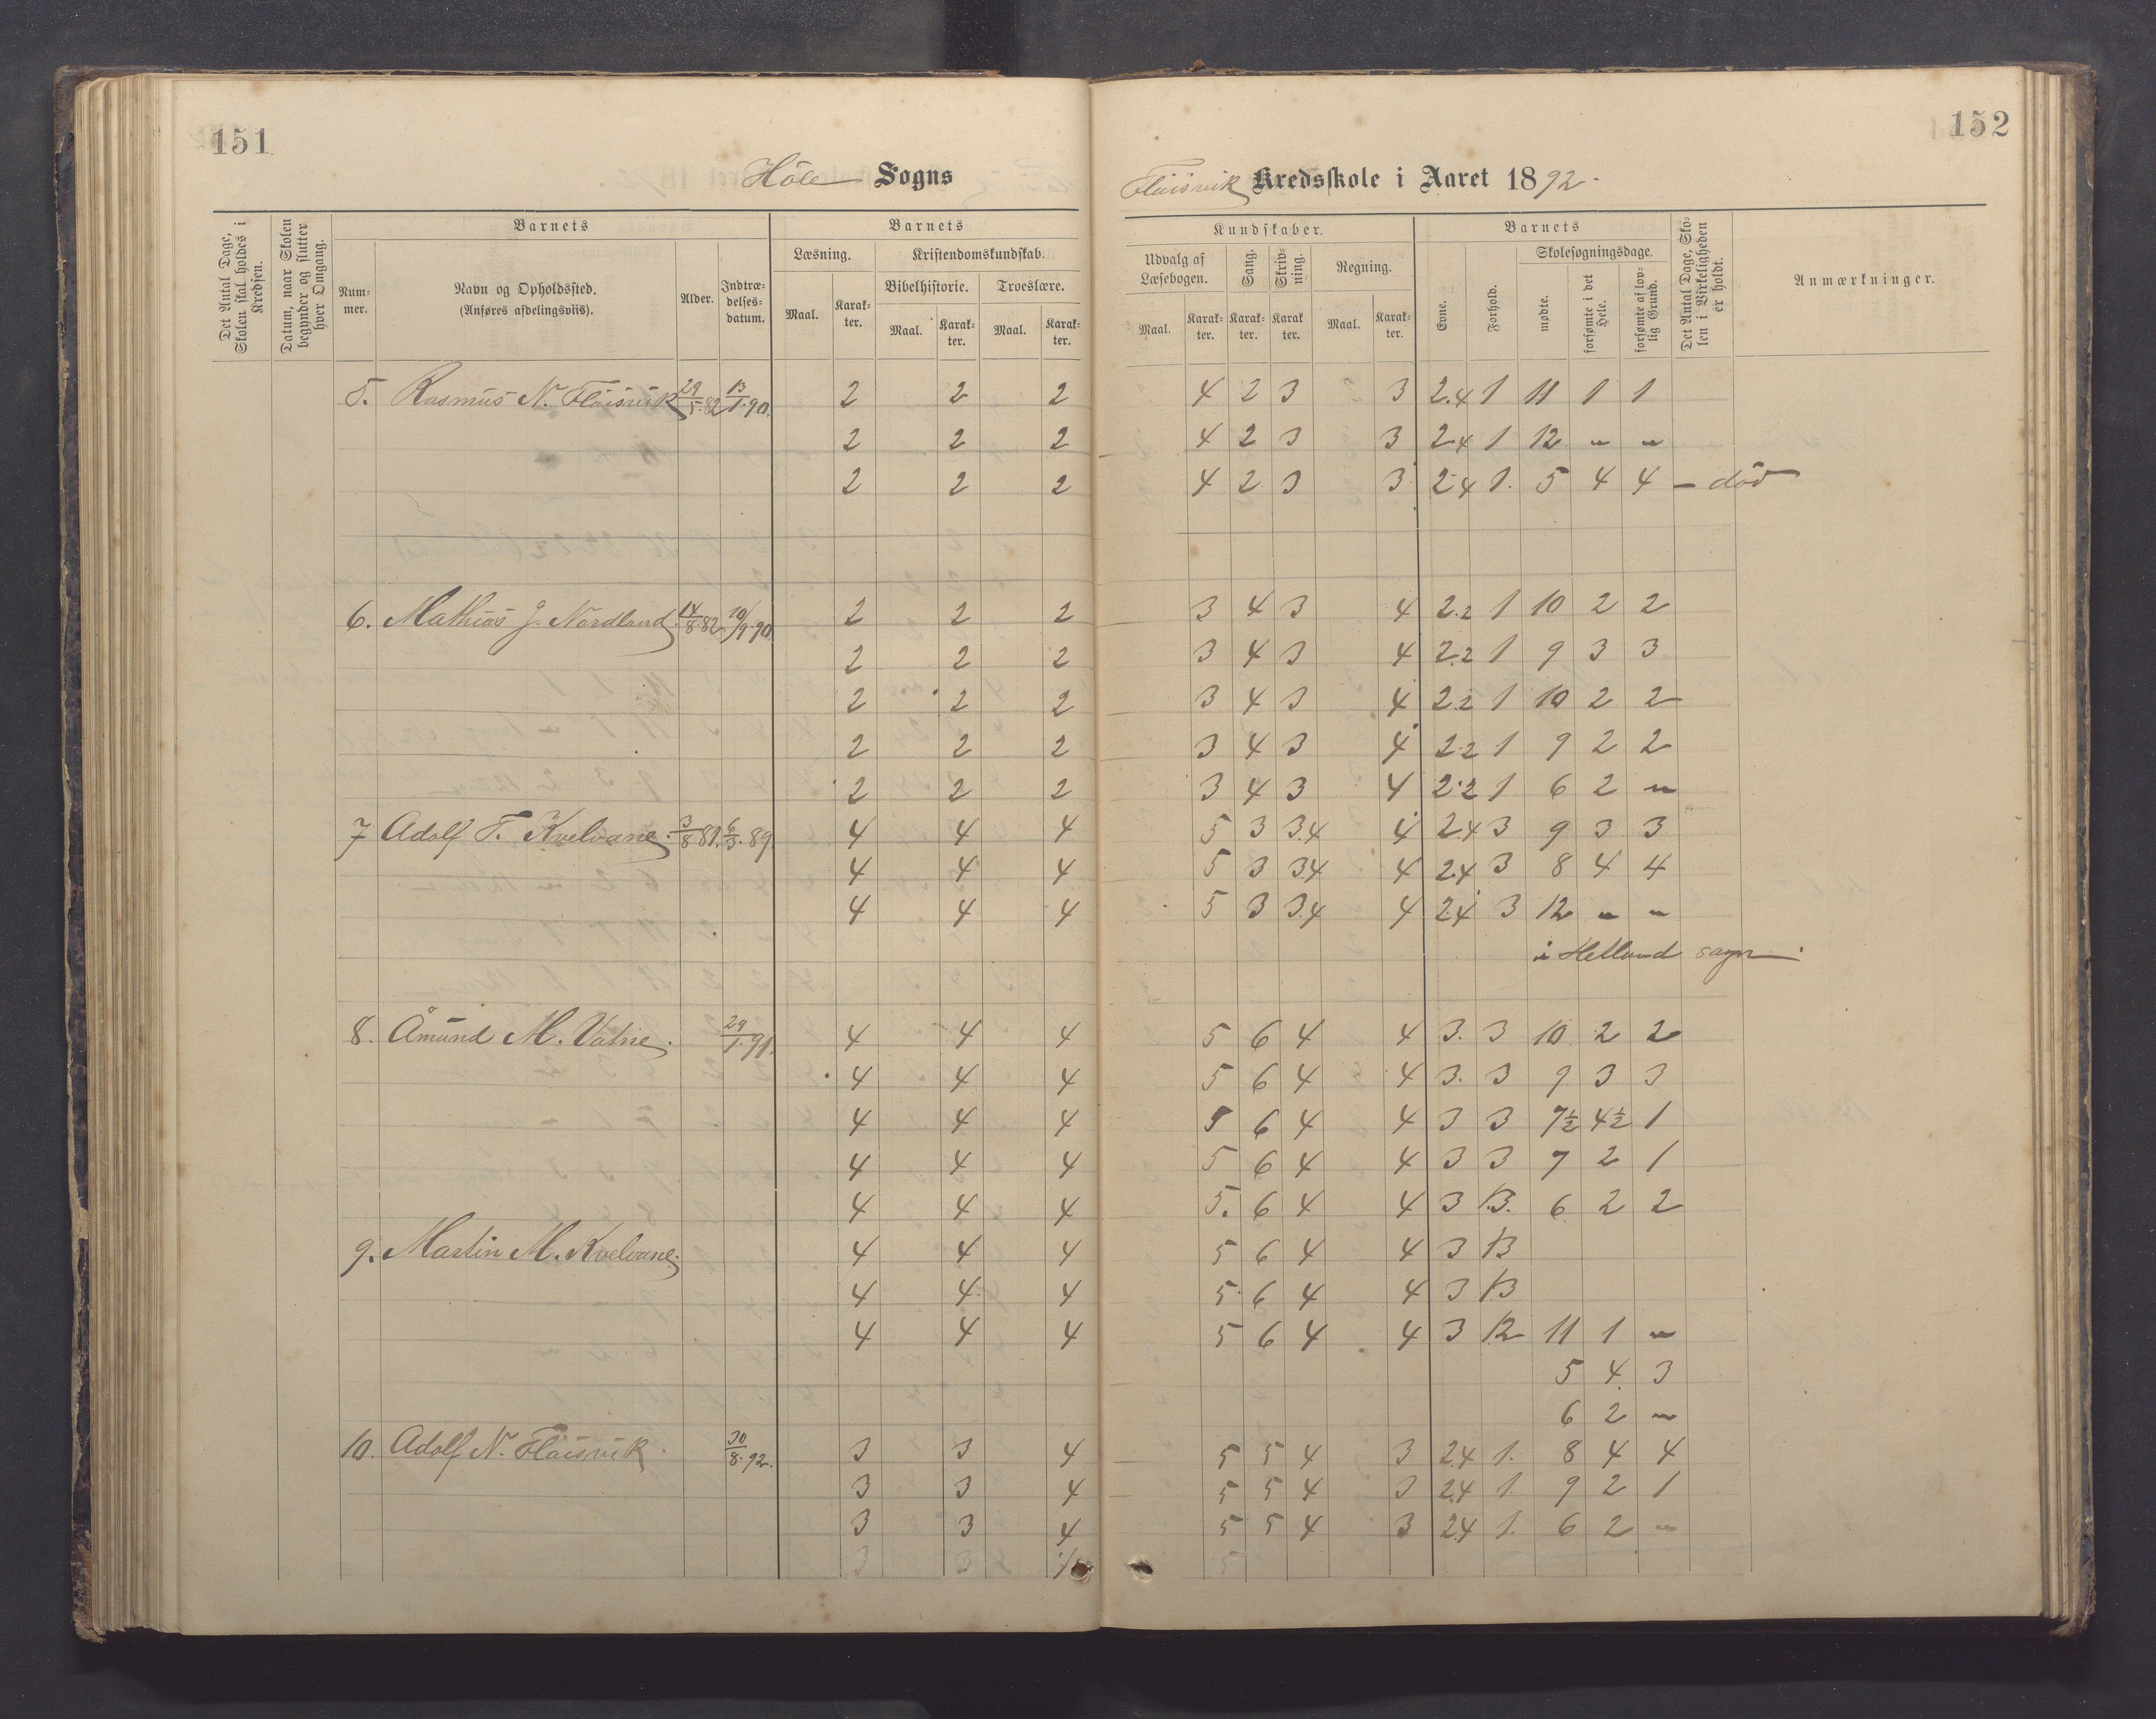 151
152
Höle Sogns
Flöisvik Kredsskole i Aaret 1892.
Det Antal Dage, Skolen skal holdes i Kredsen.
Datum, naar Skolen begynder og slutter hver Omgang.
Barnets
Num-mer.
Navn og Opholdssted.
(Anføres afdelingsviis).
Alder.
Indtræ-delses-datum.
Barnets
Læsning.
Maal.
Karak-ter.
Kristendomskundskab.
Bibelhistorie.
Maal.
Karak-ter.
Troeslære.
Maal.
Karak-ter.
Kundskaber.
Udvalg af Læsebogen.
Maal.
Karak-ter.
Sang.
Karak-ter.
Skriv-ning.
Karak-ter.
Regning.
Maal.
Karak-ter.
Barnets
Evne.
Forhold.
Skolesøgningsdage.
mødte.
forsømte i det Hele.
forsømte af lov-lig Grund.
Det Antal Dage, Sko-len i Virkeligheden er holdt.
Anmærkninger.
5. Rasmus N. Flöisvik 29/5.82 13/1.90. 2 2 2 4 2 3 3 2.4 1 11 1 1
2 2 2 4 2 3 3 2.4 1 12 " "
2 2 2 4 2 3 3 2.4 1. 5 4 4 – död
6. Mathias J. Nordland. 14/8.82 10/9.90. 2 2 2 3 4 3 4 2.2 1 10 2 2
2 2 2 3 4 3 4 2.2 1 9 3 3
2 2 2 3 4 3 4 2.2 1 10 2 2
2 2 2 3 4 3 4 2.2 1 9 2 2
2 2 2 3 4 3 4 2.2 1 6 2 "
7 Adolf T. Kvelvane. 3/8 81. 6/3.89. 4 4 4 5 3 3.4 4 2.4 3 9 3 3
4 4 4 5 3 3.4 4 2.4 3 8 4 4
4 4 4 5 3 3.4 4 2.4 3 12 " "
i Helland sogn
8. Åmund M. Vatne. 29/1.91. 4 4 4 5 6 4 4 3. 3 10 2 2
4 4 4 5 6 4 4 3. 3 9 3 3
4 4 4 5 6 4 4 3 3 7½ 4½ 1
4 4 4 5 6 4 4 3 3 7 2 1
4 4 4 5. 6 4 4 3 1.3. 6 2 2
9. Martin M. Kvelvane. 4 4 4 5 6 4 4 3 1.3
4 4 4 5 6 4 4 3 1.3
4 4 4 5 6 4 4 3 1.2 11 1 "
5 4 3
6 2 "
10. Adolf N. Flöisvik. 30/8.92. 3 3 4 5 5 4 3 2.4 1. 8 4 4
3 3 4 5 5 4 3 2.4 1. 9 2 1
3 3 4 5 5 4 3 2.4 1. 6 2 "
3 3 5